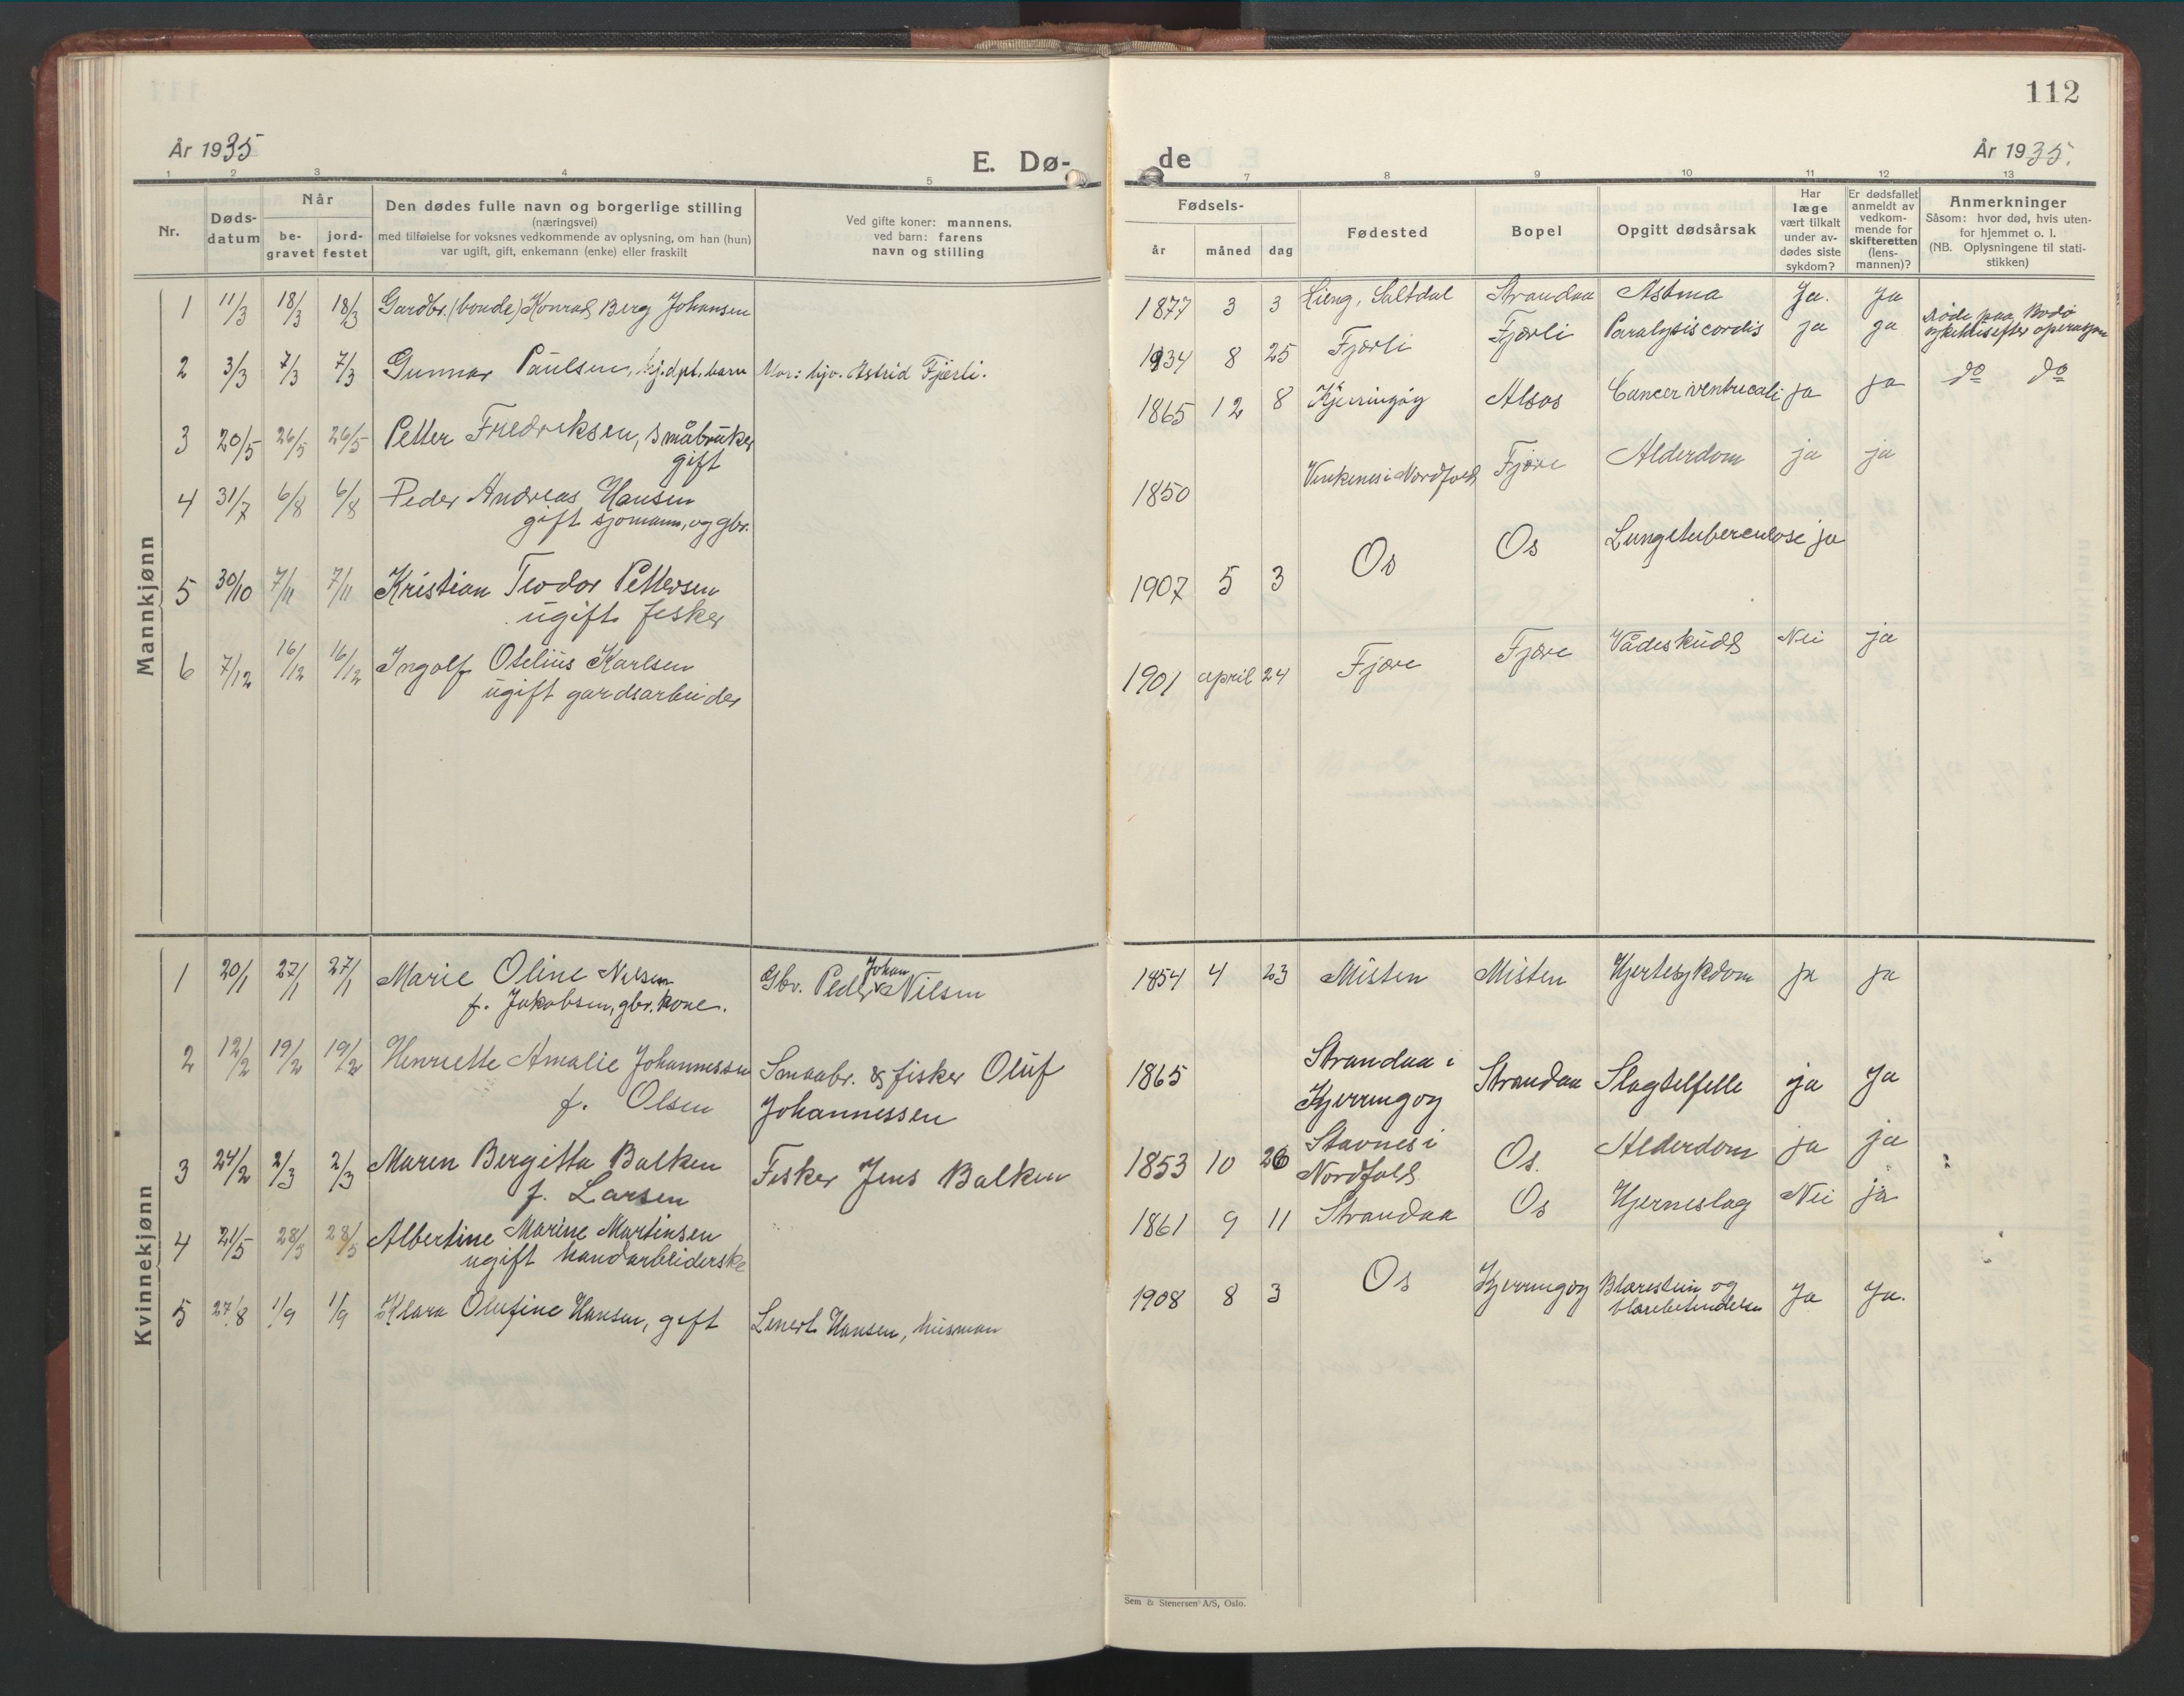 112
År 1935
E. Dø-
de
År 1935.
1 2 3 4 5 7 8 9 10 11 12 13
Nr.
Døds-
datum
Når
be-
gravet
jord-
festet
Den dødes fulle navn og borgerlige stilling
(næringsvei)
med tilføielse for voksnes vedkommende av oplysning, om han (hun)
var ugift, gift, enkemann (enke) eller fraskilt
Ved gifte koner: mannens,
ved barn: farens
navn og stilling
Fødsels-
år måned dag
Fødested
Bopel
Opgitt dødsårsak
Har
læge
vært tilkalt
under av-
dødes siste
sykdom?
Er dødsfallet
anmeldt av
vedkom-
mende for
skifteretten
(lens-
mannen)?
Anmerkninger
Såsom: hvor død, hvis uten-
for hjemmet o. l.
(NB. Oplysningene til stati-
stikken)
Mannkjønn
1 11/3 18/3 18/3 Gardbr. (bonde) Konrad Berg Johansen
1877 3 3 Saltdal Strandaa Astma Ja. Ja
døde paa Bodø
sykehus efter operasjon
2 3/3 7/3 7/3 Gunnar Paulsen, hj.dpt. barn Mor: hjv. Astrid Fjærli.
1934 8 25 Fjærli Fjærli Paralysis cordis ja ja
3 20/5 26/5 26/5 Petter Fredriksen, småbruker
gift
1865 12 8 Kjerringøy Alsos Cancer ventriculi ja ja do do
4 31/7 6/8 6/8 Peder Andreas Hansen
gift sjømann, og gbr.
1850 Vinkenes i Nordfold Fjære Alderdom ja ja
5 30/10 7/11 7/11 Kristian Teodor Pettersen
ugift fisker
1907 5 3 Os Os Lungetuberculose ja
6 7/12 16/12 16/12 Ingolf Otelius Karlsen
ugift gardsarbeider
1901 april 24 Fjære Fjære Vådeskudd Nei ja
Kvinnekjønn
1 20/1 27/1 27/1 Marie Oline Nilsen
f. Jakobsen, gbr. kone.
Gbr. Peder Johan Nilsen
1854 4 23 Misten Misten Hjertesykdom ja ja
2 12/2 19/2 19/2 Henriette Amalie Johannessen
f. Olsen
Smaabr. & fisker Oluf
Johannessen
1865 Strandaa i
Kjerringøy
Strandaa Slagtilfelle ja ja
3 24/2 2/3 2/3 Maren Bergitta Balken
f. Larsen
Fisker Jens Balken
1853 10 26 Stavnes i
Nordfold
Os. Alderdom ja ja
4 21/5 28/5 28/5 Albertine Marine Martinsen
ugift handarbeiderske
1861 9 11 Strandaa Os Hjerneslag Nei ja
5 27/8 1/9 1/9 Klara Olufine Hansen, gift Lenert Hansen, husman
1908 8 3 Os Kjerringøy Blæresten og
blærebetendelse
Ja Ja.
Sem & Stenersen A/S, Oslo.